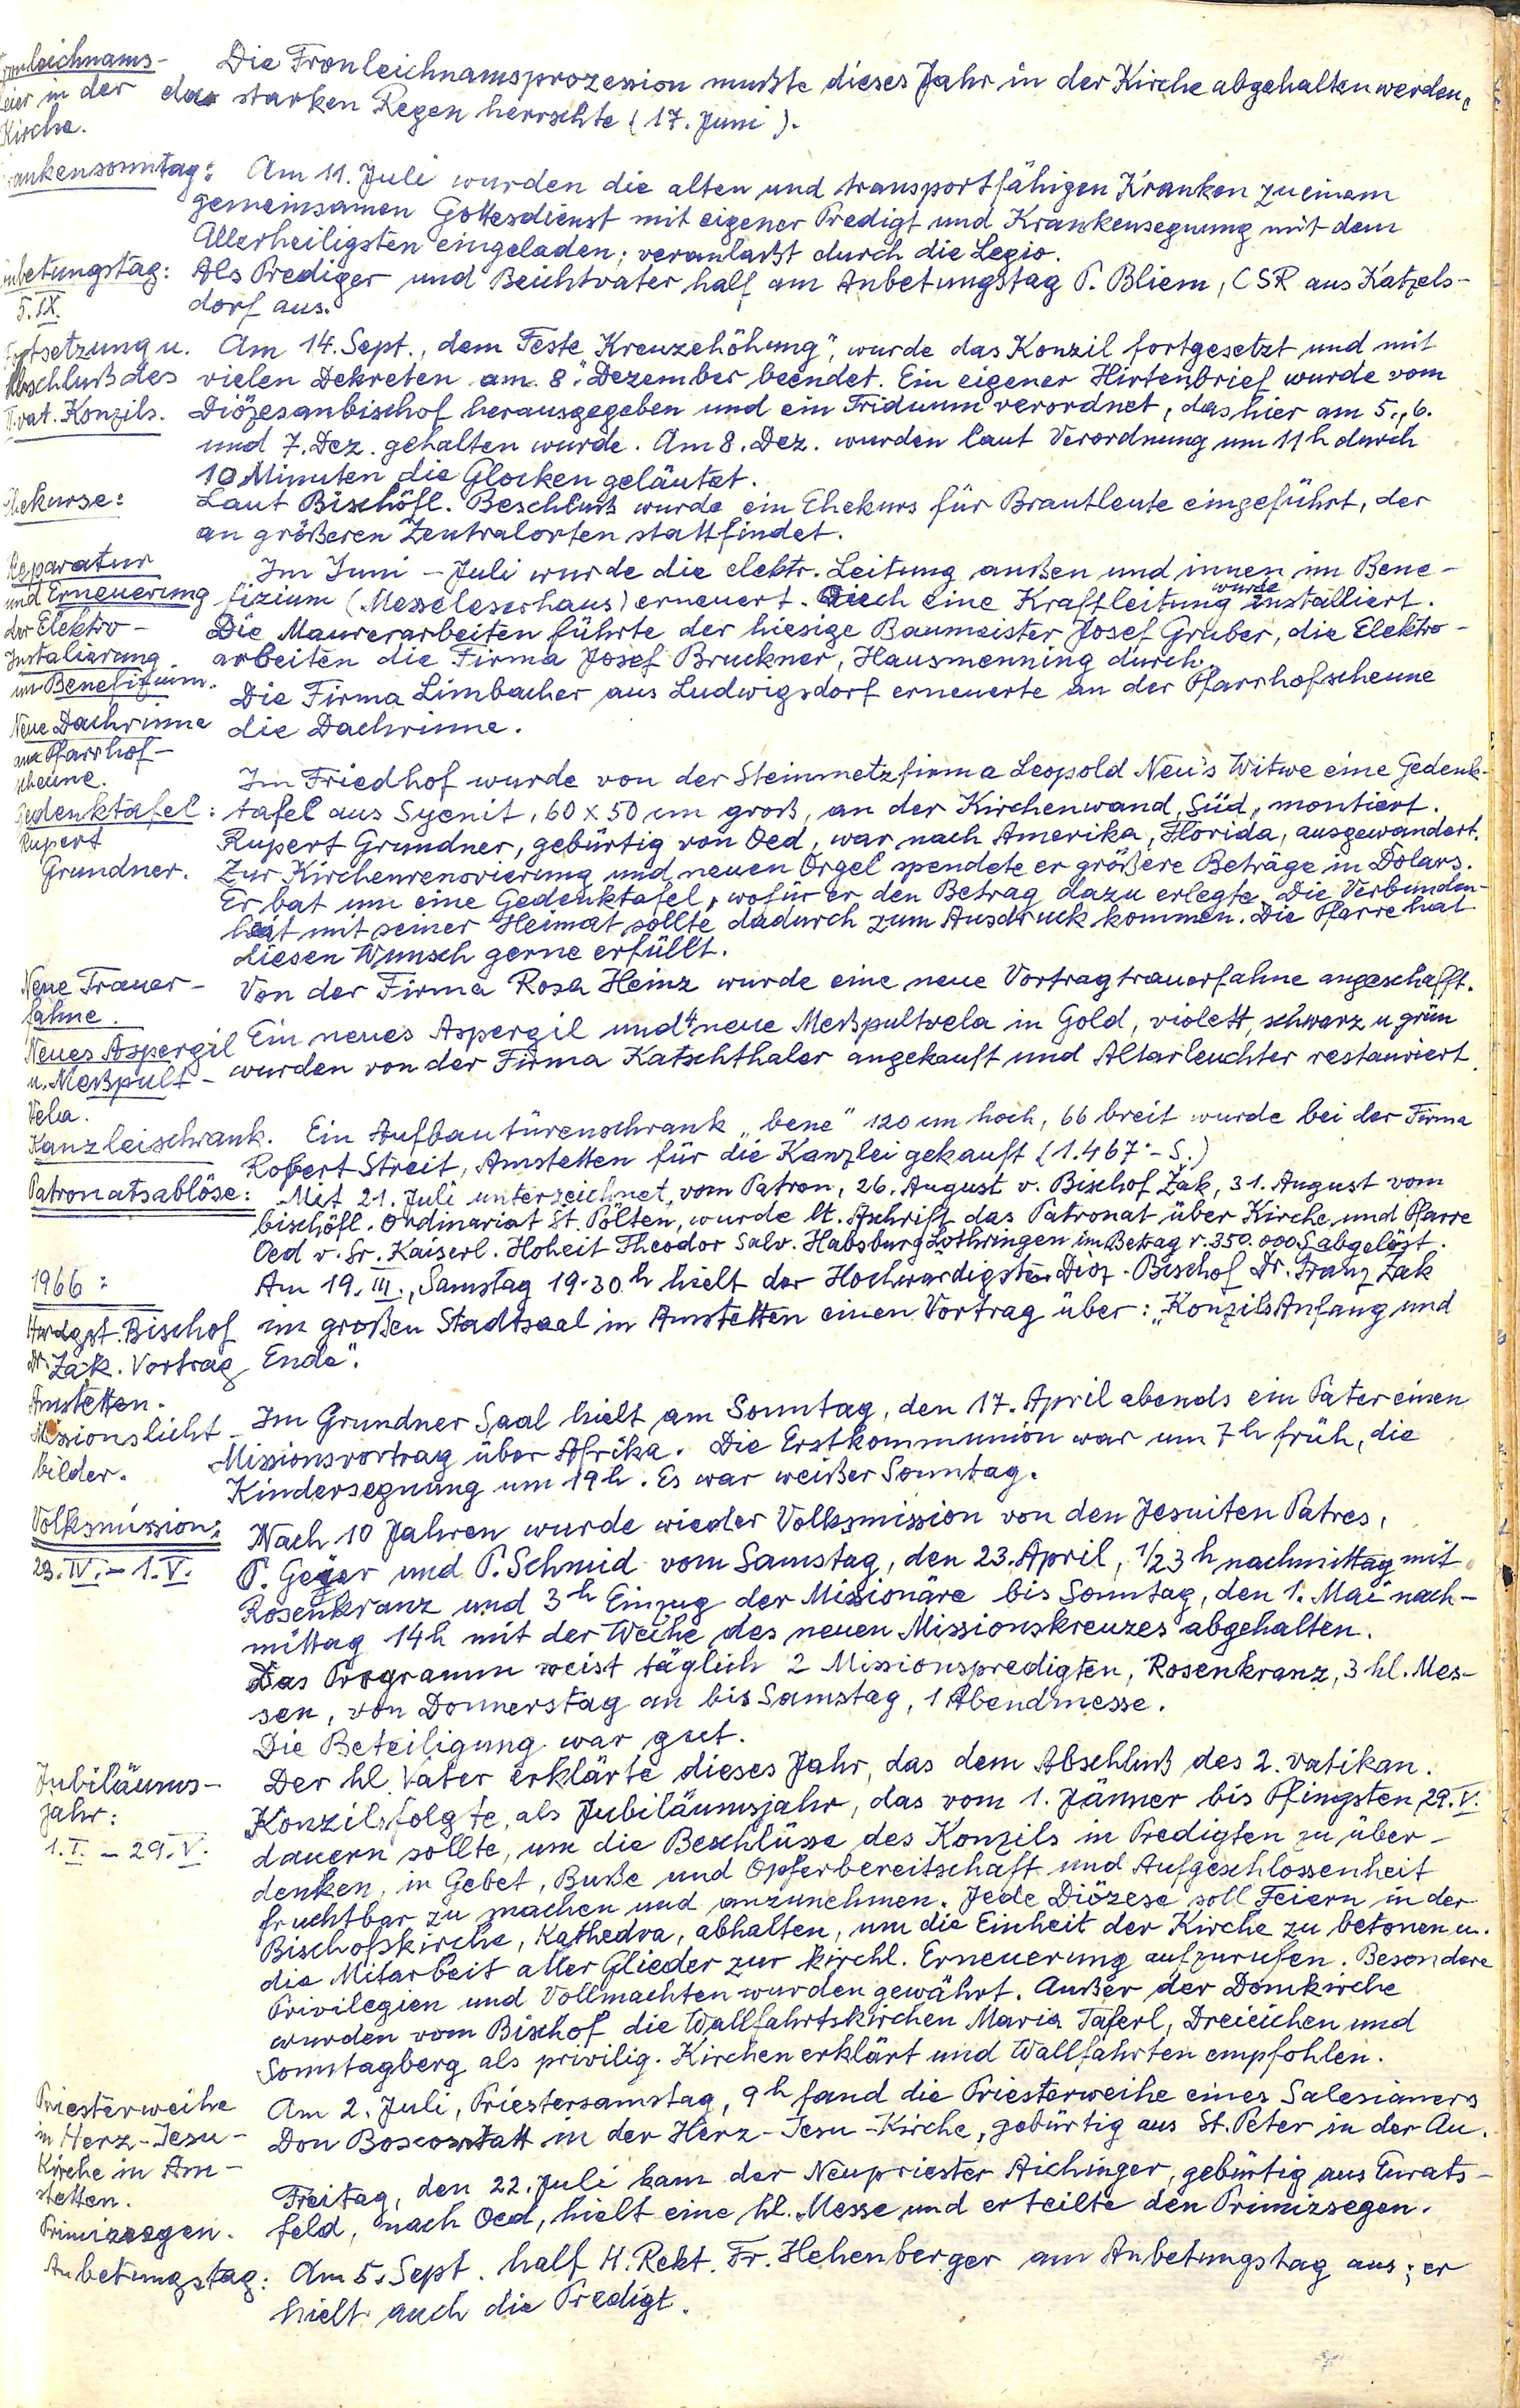 Fronleichnams-
feier in der
Kirche.
Die Fronleichnamsprozession mußte dieses Jahr in der Kirche abgehalten werden,
da starken Regen herrschte (17. Juni).
Krankensonntag:
Am 11. Juli wurden die alten und transportfähigen Kranken zu einem
gemeinsamen Gottesdienst mit eigener Predigt und Krankensegnung mit dem
Allerheiligsten eingeladen; veranlaßt durch die Legio.
Anbetungstag:
5. IX.
Als Prediger und Beichtvater half am Anbetungstag P. Bliem, CSR aus Katzels-
dorf aus.
Fortsetzung u.
Abschluß des
II. vat. Konzils.
Am 14. Sept., dem Feste „Kreuzehöhung", wurde das Konzil fortgesetzt und mit
vielen Dekreten am 8. Dezember beendet. Ein eigener Hirtenbrief wurde vom
Diözesanbischof herausgegeben und ein Triduum verordnet, das hier am 5., 6.
und 7. Dez. gehalten wurde. Am 8. Dez. wurden laut Verordnung um 11 h durch
10 Minuten die Glocken geläutet.
Ehekurse:
Laut Bischöfl. Beschluß wurde ein Ehekurs für Brautleute eingeführt, der
an größeren Zentralorten stattfindet.
Reparatur
und Erneuerung
der Elektro-
Instalierung
im Benefizium.
Im Juni - Juli wurde die elektr. Leitung außen und innen im Bene-
fizium (Messeleserhaus) erneuert. Auch eine Kraftleitung wurde installiert.
Die Maurerarbeiten führte der hiesige Baumeister Josef Gruber, die Elektro-
arbeiten die Firma Josef Bruckner, Hausmenning durch.
Neue Dachrinne
am Pfarrhof-
scheune.
Die Firma Limbacher aus Ludwigsdorf erneuerte an der Pfarrhofscheune
die Dachrinne.
Gedenktafel:
Rupert
Grundner.
Im Friedhof wurde von der Steinmetzfirma Leopold Neu's Witwe eine Gedenk-
tafel aus Syenit, 60 x 50 cm groß, an der Kirchenwand, Süd, montiert.
Rupert Grundner, gebürtig von Oed, war nach Amerika, Florida, ausgewandert.
Zur Kirchenrenovierung und neuen Orgel spendete er größere Beträge in Dolars.
Er bat um eine Gedenktafel, wofür er den Betrag dazu erlegte. Die Verbunden-
heit mit seiner Heimat sollte dadurch zum Ausdruck kommen. Die Pfarre hat
diesen Wunsch gerne erfüllt.
Neue Trauer-
fahne.
Von der Firma Rosa Heinz wurde eine neue Vortragtrauerfahne angeschafft.
Neues Aspergil
u. Meßpult-
Vela.
Ein neues Aspergil und 4 neue Meßpultvela in Gold, violett, schwarz u grün
wurden von der Firma Katschthaler angekauft und Altarleuchter restauriert.
Kanzleischrank.
Ein Aufbautürenschrank „bene" 120 cm hoch, 66 breit wurde bei der Firma
Robert Streit, Amstetten für die Kanzlei gekauft (1.467·- S.)
Patronatsablöse:
Mit 21. Juli unterzeichnet, vom Patron, 26. August v. Bischof Žak, 31. August vom
bischöfl. Ordinariat St. Pölten, wurde lt. Aschrift das Patronat über Kirche und Pfarre
Oed v. Sr. Kaiserl. Hoheit Theodor Salv. Habsburg Lothringen im Betrag v. 350.000 S abgelöst.
1966:
Hwdgst. Bischof
Dr. Žak. Vortrag
Amstetten.
Am 19. III., Samstag 19·30 h hielt der Hochwürdigste Diöz. Bischof Dr. Franz Žak
im großen Stadtsaal in Amstetten einen Vortrag über: „Konzils Anfang und
Ende".
Missionslicht-
bilder.
Im Grundner Saal hielt am Sonntag, den 17. April abends ein Pater einen
Missionsvortrag über Afrika. Die Erstkommunion war um 7 h früh, die
Kindersegnung um 19 h. Es war weißer Sonntag.
Volksmission:
23. IV. - 1. V.
Nach 10 Jahren wurde wieder Volksmission von den Jesuiten Patres,
P. Geyer und P. Schmid vom Samstag, den 23. April, 1/2 3 h nachmittag mit
Rosenkranz und 3 h Einzug der Missionäre bis Sonntag, den 1. Mai nach-
mittag 14 h mit der Weihe des neuen Missionskreuzes abgehalten.
Das Programm weist täglich 2 Missionspredigten, Rosenkranz, 3 hl. Mes-
sen, von Donnerstag an bis Samstag, 1 Abendmesse.
Die Beteiligung war gut.
Jubiläums-
jahr:
1. I. - 29. V.
Der hl. Vater erklärte dieses Jahr, das dem Abschluß des 2. vatikan.
Konzils folgte, als Jubiläumsjahr, das vom 1. Jänner bis Pfingsten 29. V.
dauern sollte, um die Beschlüsse des Konzils in Predigten zu über-
denken, in Gebet, Buße und Opferbereitschaft und Aufgeschlossenheit
fruchtbar zu machen und anzunehmen. Jede Diözese soll Feiern in der
Bischofskirche, Kathedra, abhalten, um die Einheit der Kirche zu betonen u.
die Mitarbeit aller Glieder zur kirchl. Erneuerung aufzurufen. Besondere
Privilegien und Vollmachten wurden gewährt. Außer der Domkirche
wurden vom Bischof die Wallfahrtskirchen Maria Taferl, Dreieichen und
Sonntagberg als privilig. Kirchen erklärt und Wallfahrten empfohlen.
Priesterweihe
in Herz-Jesu-
Kirche in Am-
stetten.
Am 2. Juli, Priestersamstag, 9 h fand die Priesterweihe eines Salesianers
Don Boscos statt in der Herz-Jesu-Kirche, gebürtig aus St. Peter in der Au.
Primizsegen.
Freitag, den 22. Juli kam der Neupriester Aichinger, gebürtig aus Eurats-
feld, nach Oed, hielt eine hl. Messe und erteilte den Primizsegen.
Anbetungstag:
Am 5. Sept. half H. Rekt. Fr. Hehenberger am Anbetungstag aus; er
hielt auch die Predigt.